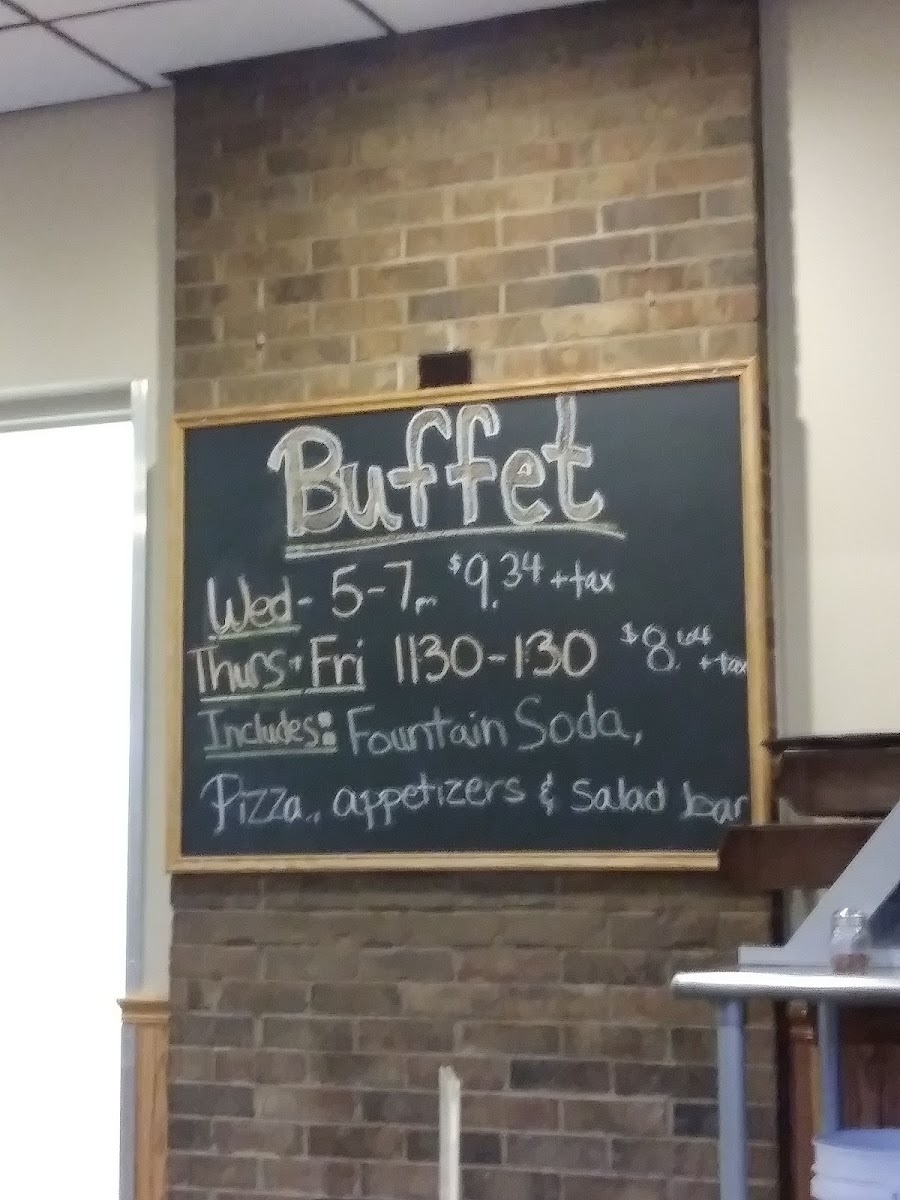 Buffet
Wed - 5-7pm $9.34 + tax
Thurs + Fri 1130-130 $8.64 + tax
Includes: Fountain Soda,
Pizza, appetizers & Salad bar